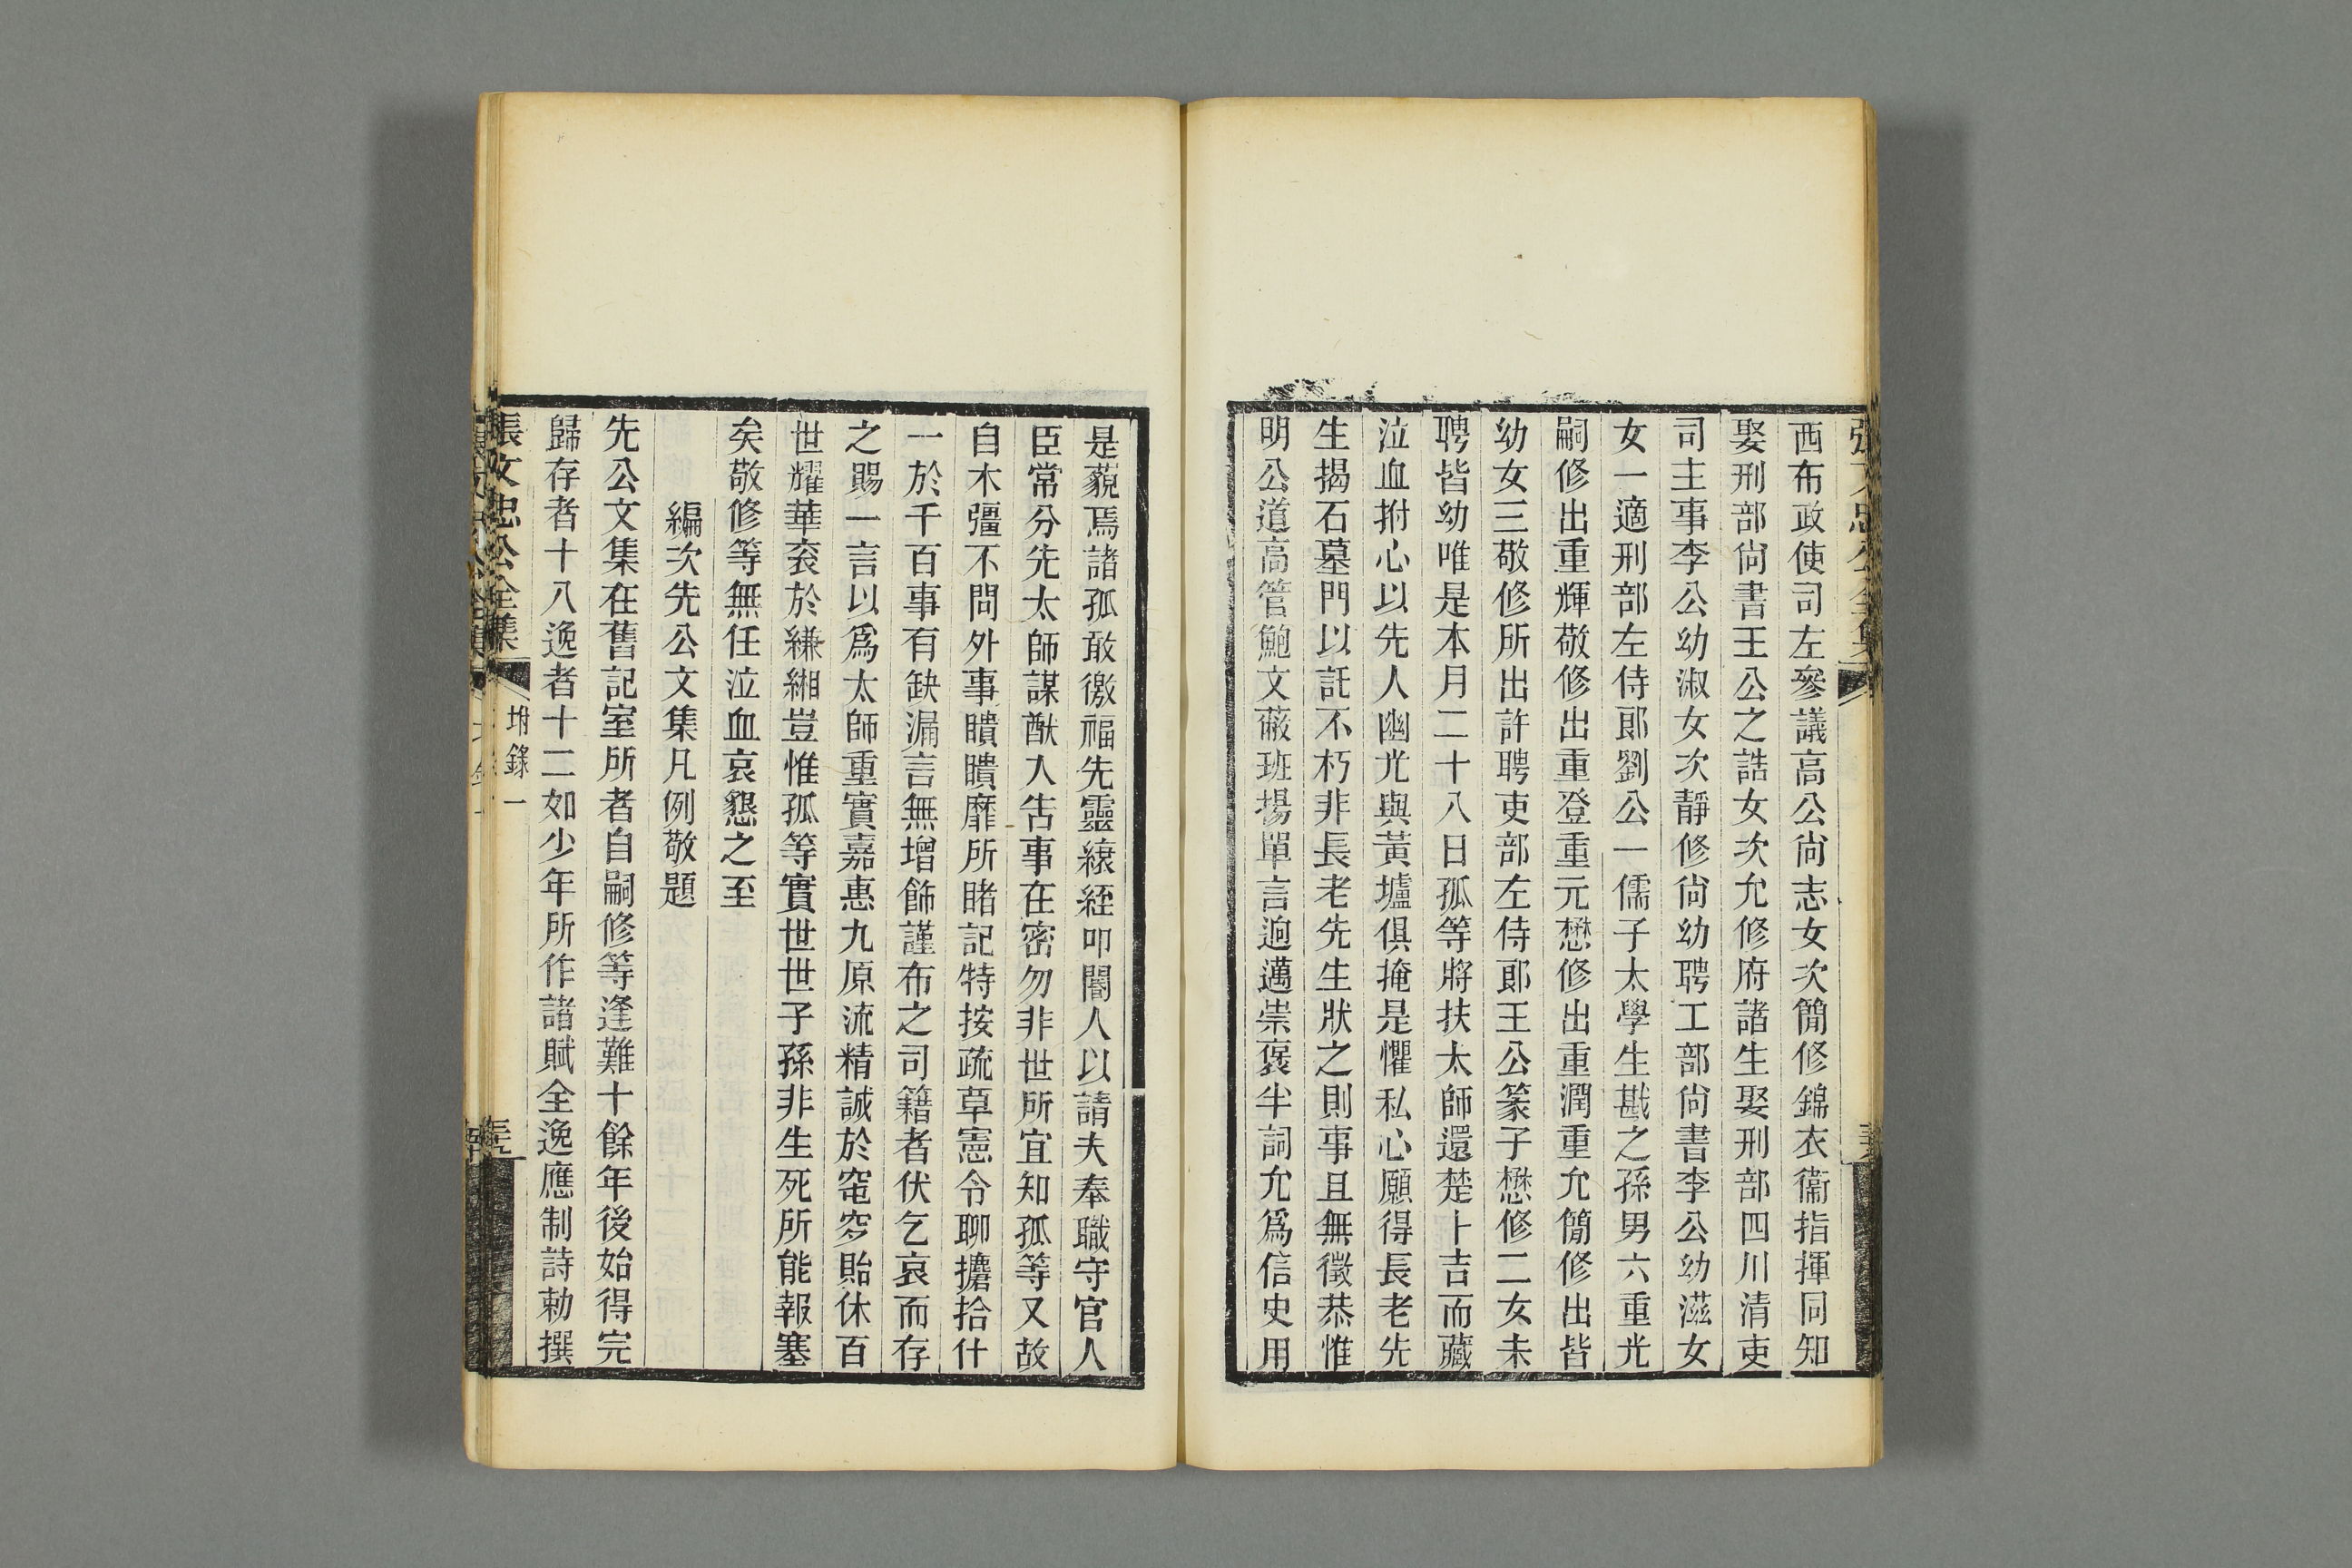 西布政使司左參議高公尙志女次簡修錦衣衞指揮同知
娶刑部尙書王公之誥女次允修府諸生娶刑部四川清吏
司主事李公幼淑女次靜修尙幼聘工部尙書李公幼滋女
女一適刑部左侍郞劉公一儒子太學生戡之孫男六重光
嗣修出重輝敬修出重登重元懋修出重潤重允簡修出皆
幼女三敬修所出許聘吏部左侍郞王公篆子懋修二女未
聘皆幼唯是本月二十八日孤等將扶太師還楚卜吉而藏
泣血拊心以先人幽光與黃壚俱掩是懼私心願得長老先
生揭石墓門以託不朽非長老先生狀之則事且無徵恭惟
明公道高管鮑文蔽班揚單言逈邁崇褒半詞允爲信史用
是藐焉諸孤敢徼福先靈縗絰叩閽人以請夫奉職守官人
臣常分先太師謀猷入告事在密勿非世所宜知孤等又故
自木彊不問外事瞶瞶靡所睹記特按疏草憲令聊攟拾什
一於千百事有缺漏言無增飾謹布之司籍者伏乞哀而存
之賜一言以爲太師重實嘉惠九原流精誠於窀穸貽休百
世耀華袞於縑緗豈惟孤等實世世子孫非生死所能報塞
矣敬修等無任泣血哀懇之至
編次先公文集凡例敬題
先公文集在舊記室所者自嗣修等逢難十餘年後始得完
歸存者十八逸者十二如少年所作諸賦全逸應制詩勅撰
張文忠公全集
坿錄一